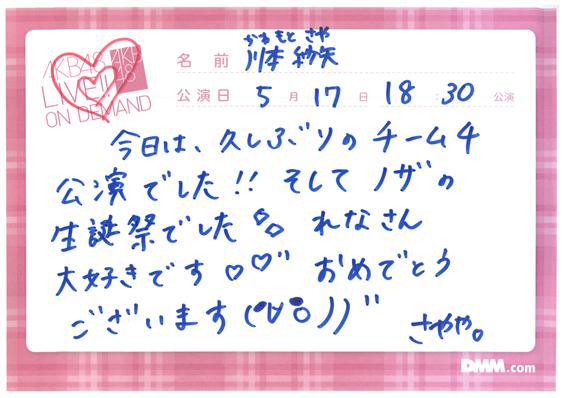 AKB48
LIVE!!
ON DEMAND
AKB
48
かわもと さや
名前 川本 紗矢
公演日 5月17日 18:30公演
今日は、久しぶりのチーム4
公演でした!! そしてノザの
生誕祭でした れなさん
大好きです♡♡ おめでとう
ございます
さやや。
DMM.com